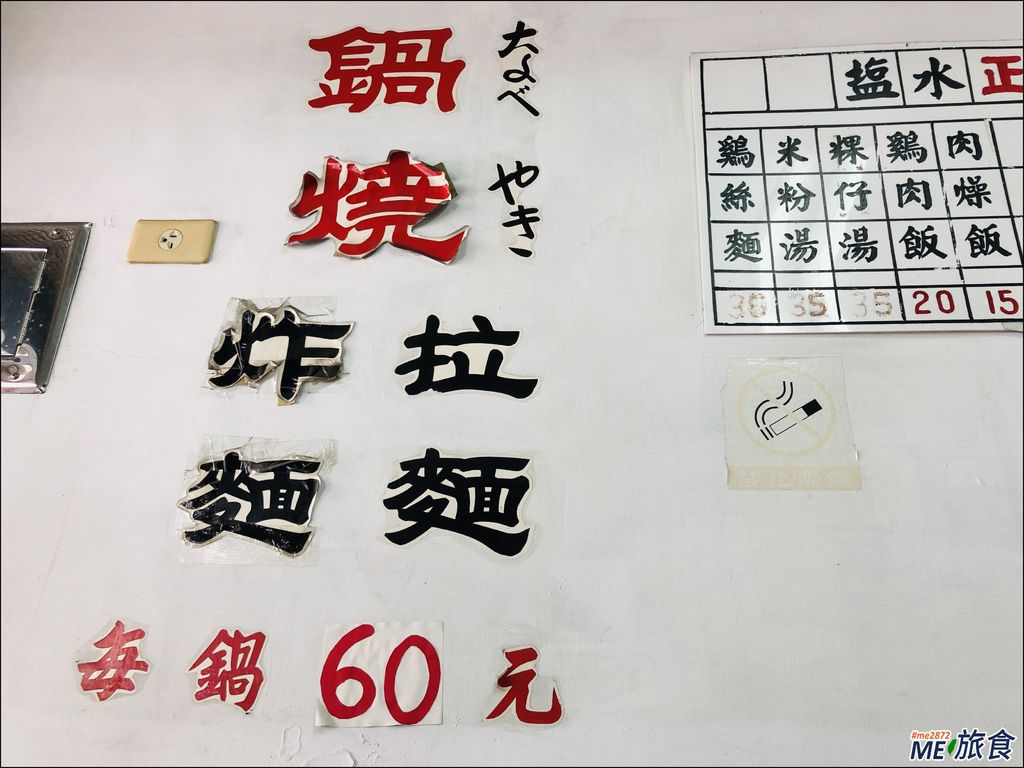 鍋燒
なべ やき
拉麵
炸麵
每鍋60元
塩水正
肉燥飯 15
鷄肉飯 20
粿仔湯 35
米粉湯 35
鷄絲麵
#me2872
ME旅食